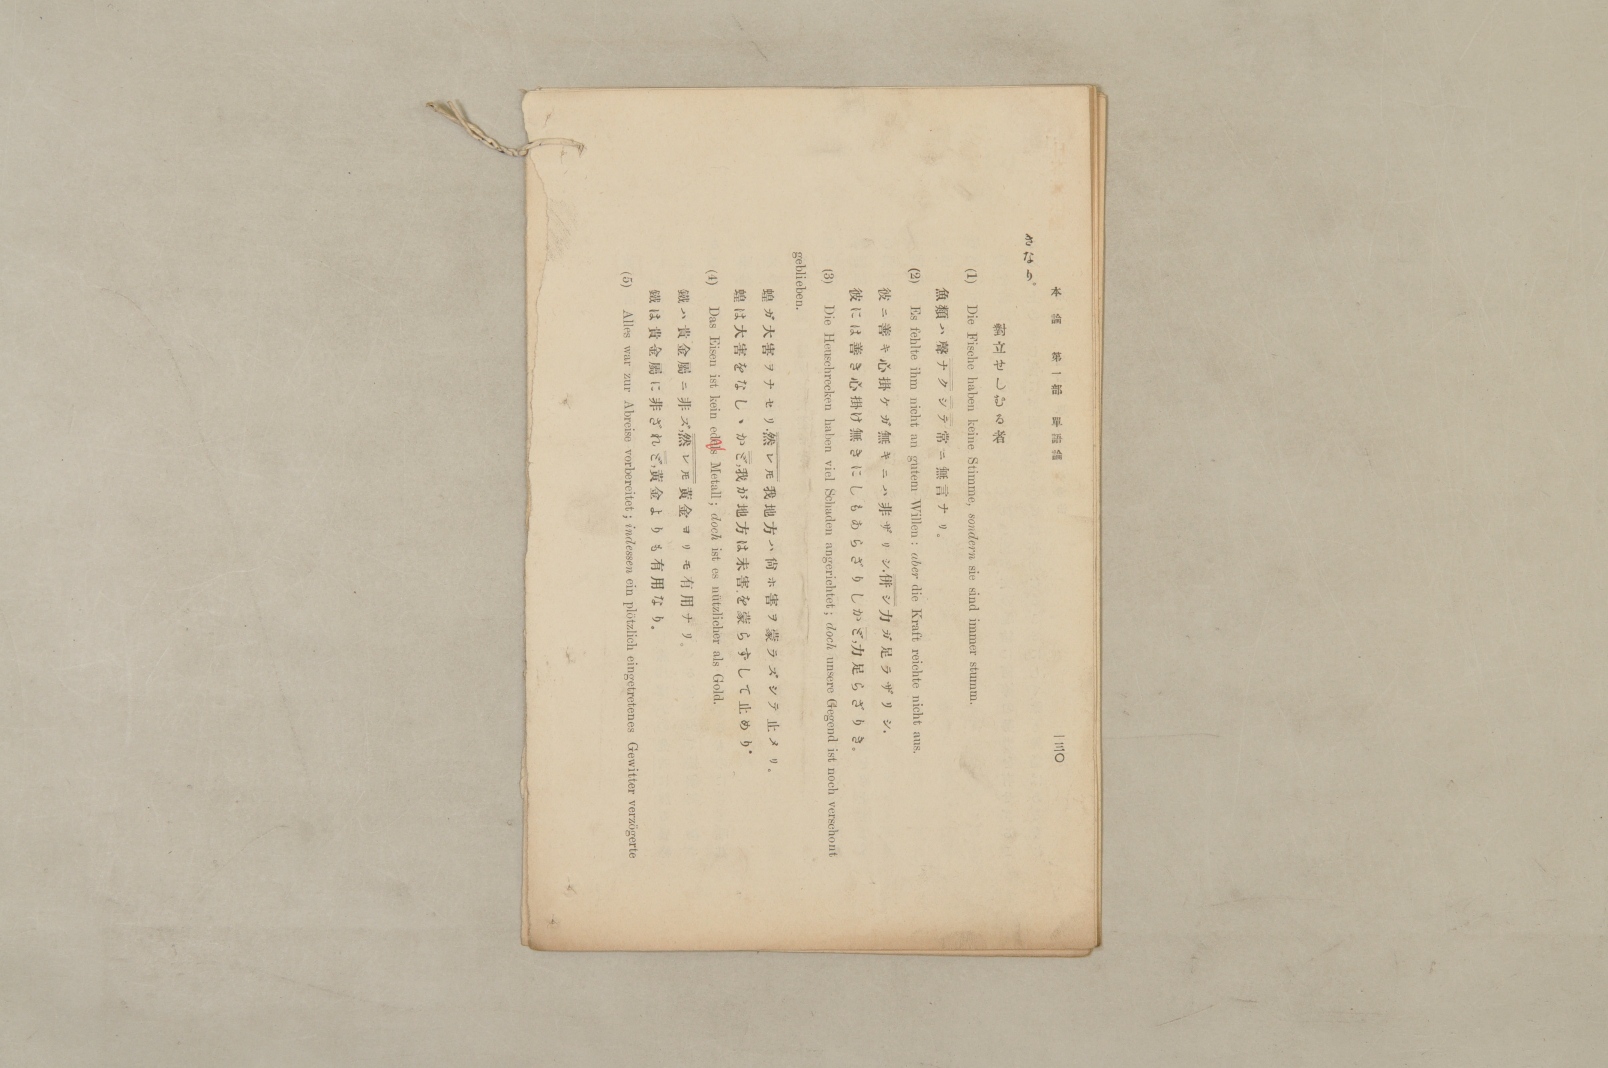 本論 第一部 單語論 一三〇
めなり。
對立せしむる者
(1) Die Fische haben keine Stimme, sondern sie sind immer stumm.
魚類ハ聲ナクシテ常ニ無言ナリ。
(2) Es fehlte ihm nicht an gutem Willen: aber die Kraft reichte nicht aus.
彼ニ善キ心掛ケガ無キニハ非ザリシ、併シ力ガ足ラザリシ.
彼には善き心掛け無きにしもあらざりしかど、力足らざりき。
(3) Die Heuschrecken haben viel Schaden angerichtet; doch unsere Gegend ist noch verschont
geblieben.
蝗ガ大害ヲナセリ.然レモ我地方ハ尙ホ害ヲ蒙ラズシテ止メリ。
蝗は大害をなしゝかど、我が地方は未害を蒙らずして止めり.
(4) Das Eisen ist kein edels Metall; doch ist es nützlicher als Gold.
鐵ハ貴金屬ニ非ズ、然レモ黃金ヨリモ有用ナリ。
鐵は貴金屬に非ざれど、黃金よりも有用なり。
(5) Alles war zur Abreise vorbereitet; indessen ein plötzlich eingetretenes Gewitter verzögerte